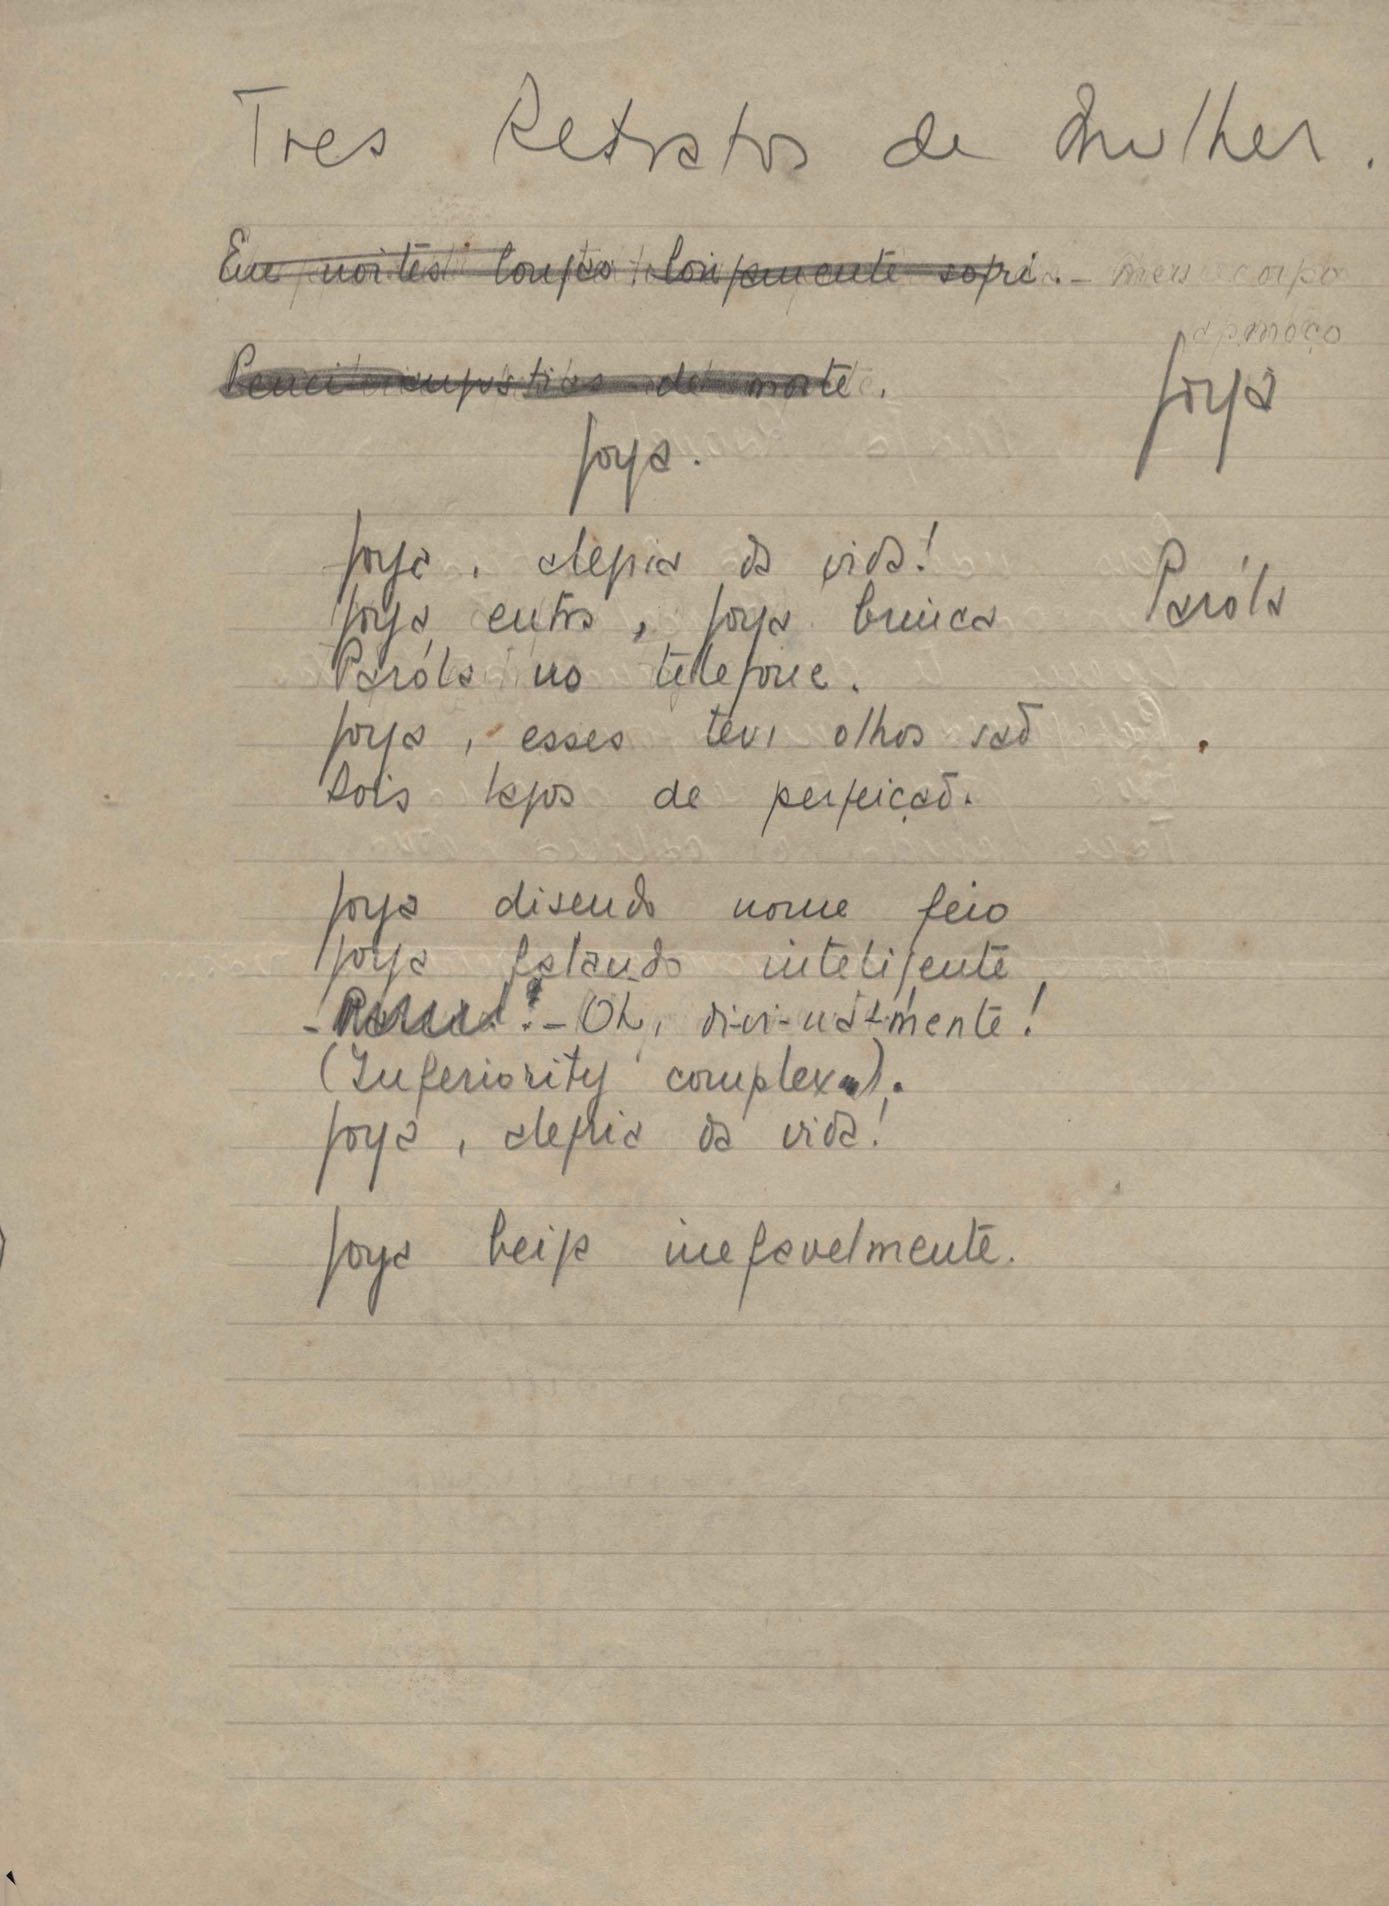 Tres Retratos de Mulher.
Em noites longas longamente sofri. - meu corpo
Penei angustias de morte.
Joya
Joya.
Joya, alegria da vida!
Joya entra, Joya brinca
Paróla
Paróla no telefone.
Joya, esses teus olhos saõ
Dois lagos de perfeiçaõ.
Joya disendo nome feio
Joya falando inteligente
- Oh, di-vi-na-mente!
(Inferiority complex).
Joya, alegria da vida!
Joya beija inefavelmente.